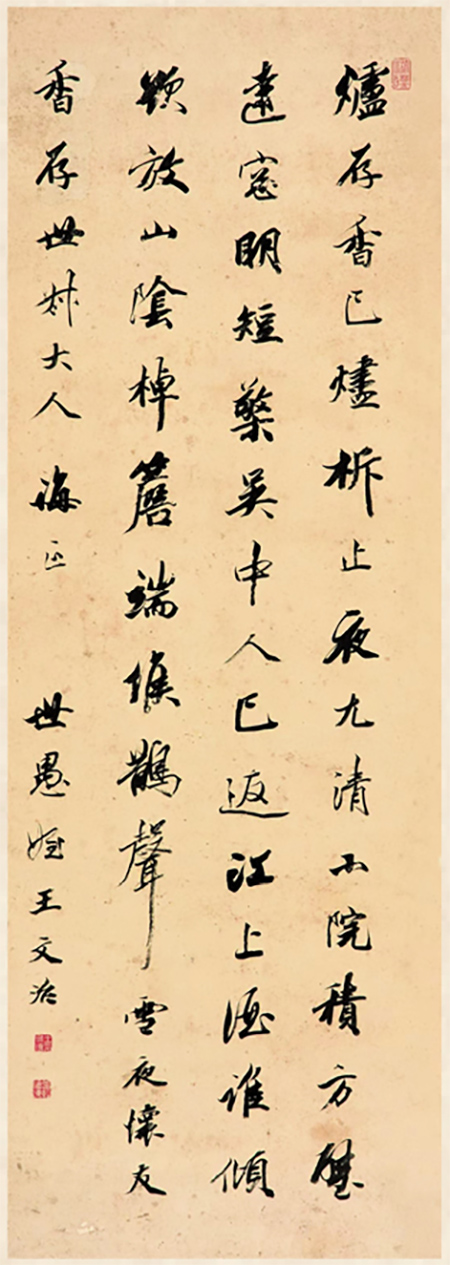 爐存香已燼柝止夜尤清小院積方璧
遠窓明短檠吳中人已返江上酒誰傾
欲放山陰棹簷端候鵲聲 雪夜懷友
香存世叔大人 誨正 世愚姪王文治